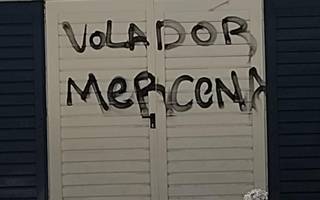 VOLADOR
MerceNA